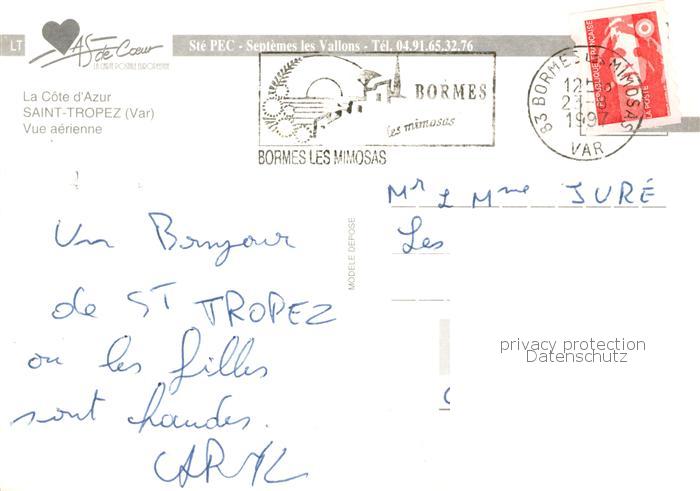 LT
As de Cœur
LA CARTE POSTALE EUROPEENNE
Sté PEC - Septèmes les Vallons - Tél. 04.91.65.32.76
La Côte d'Azur
SAINT-TROPEZ (Var)
Vue aérienne
BORMES
les mimosas
BORMES LES MIMOSAS
83 BORMES LES MIMOSAS
1997
VAR
REPUBLIQUE FRANÇAISE
LA POSTE
MODELE DEPOSE
Mr & Mme JURÉ
Les
Un Bonjour
de ST TROPEZ
ou les filles
sont chaudes.
CARYL
privacy protection
Datenschutz